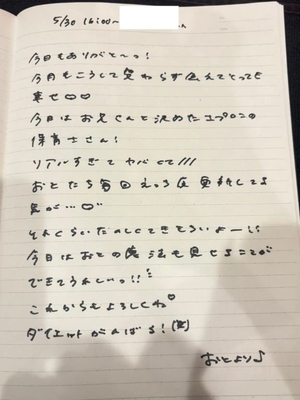 5/30 16:00〜
今日もありがと〜っ!
今月もこうして変わらず会えてとっても
幸せ♡♡
今日はお兄さんと決めたエプロンの
保育士さん!
リアルすぎてヤバくて///
おとたち毎回えっち度更新してる
気が…♡
それくらいたのしくできそうよー!!
今日はおとの魔法も見せることが
できてうれしいっ!!
これからもよろしくね♡
ダイエットがんばる!(笑)
おとより♪